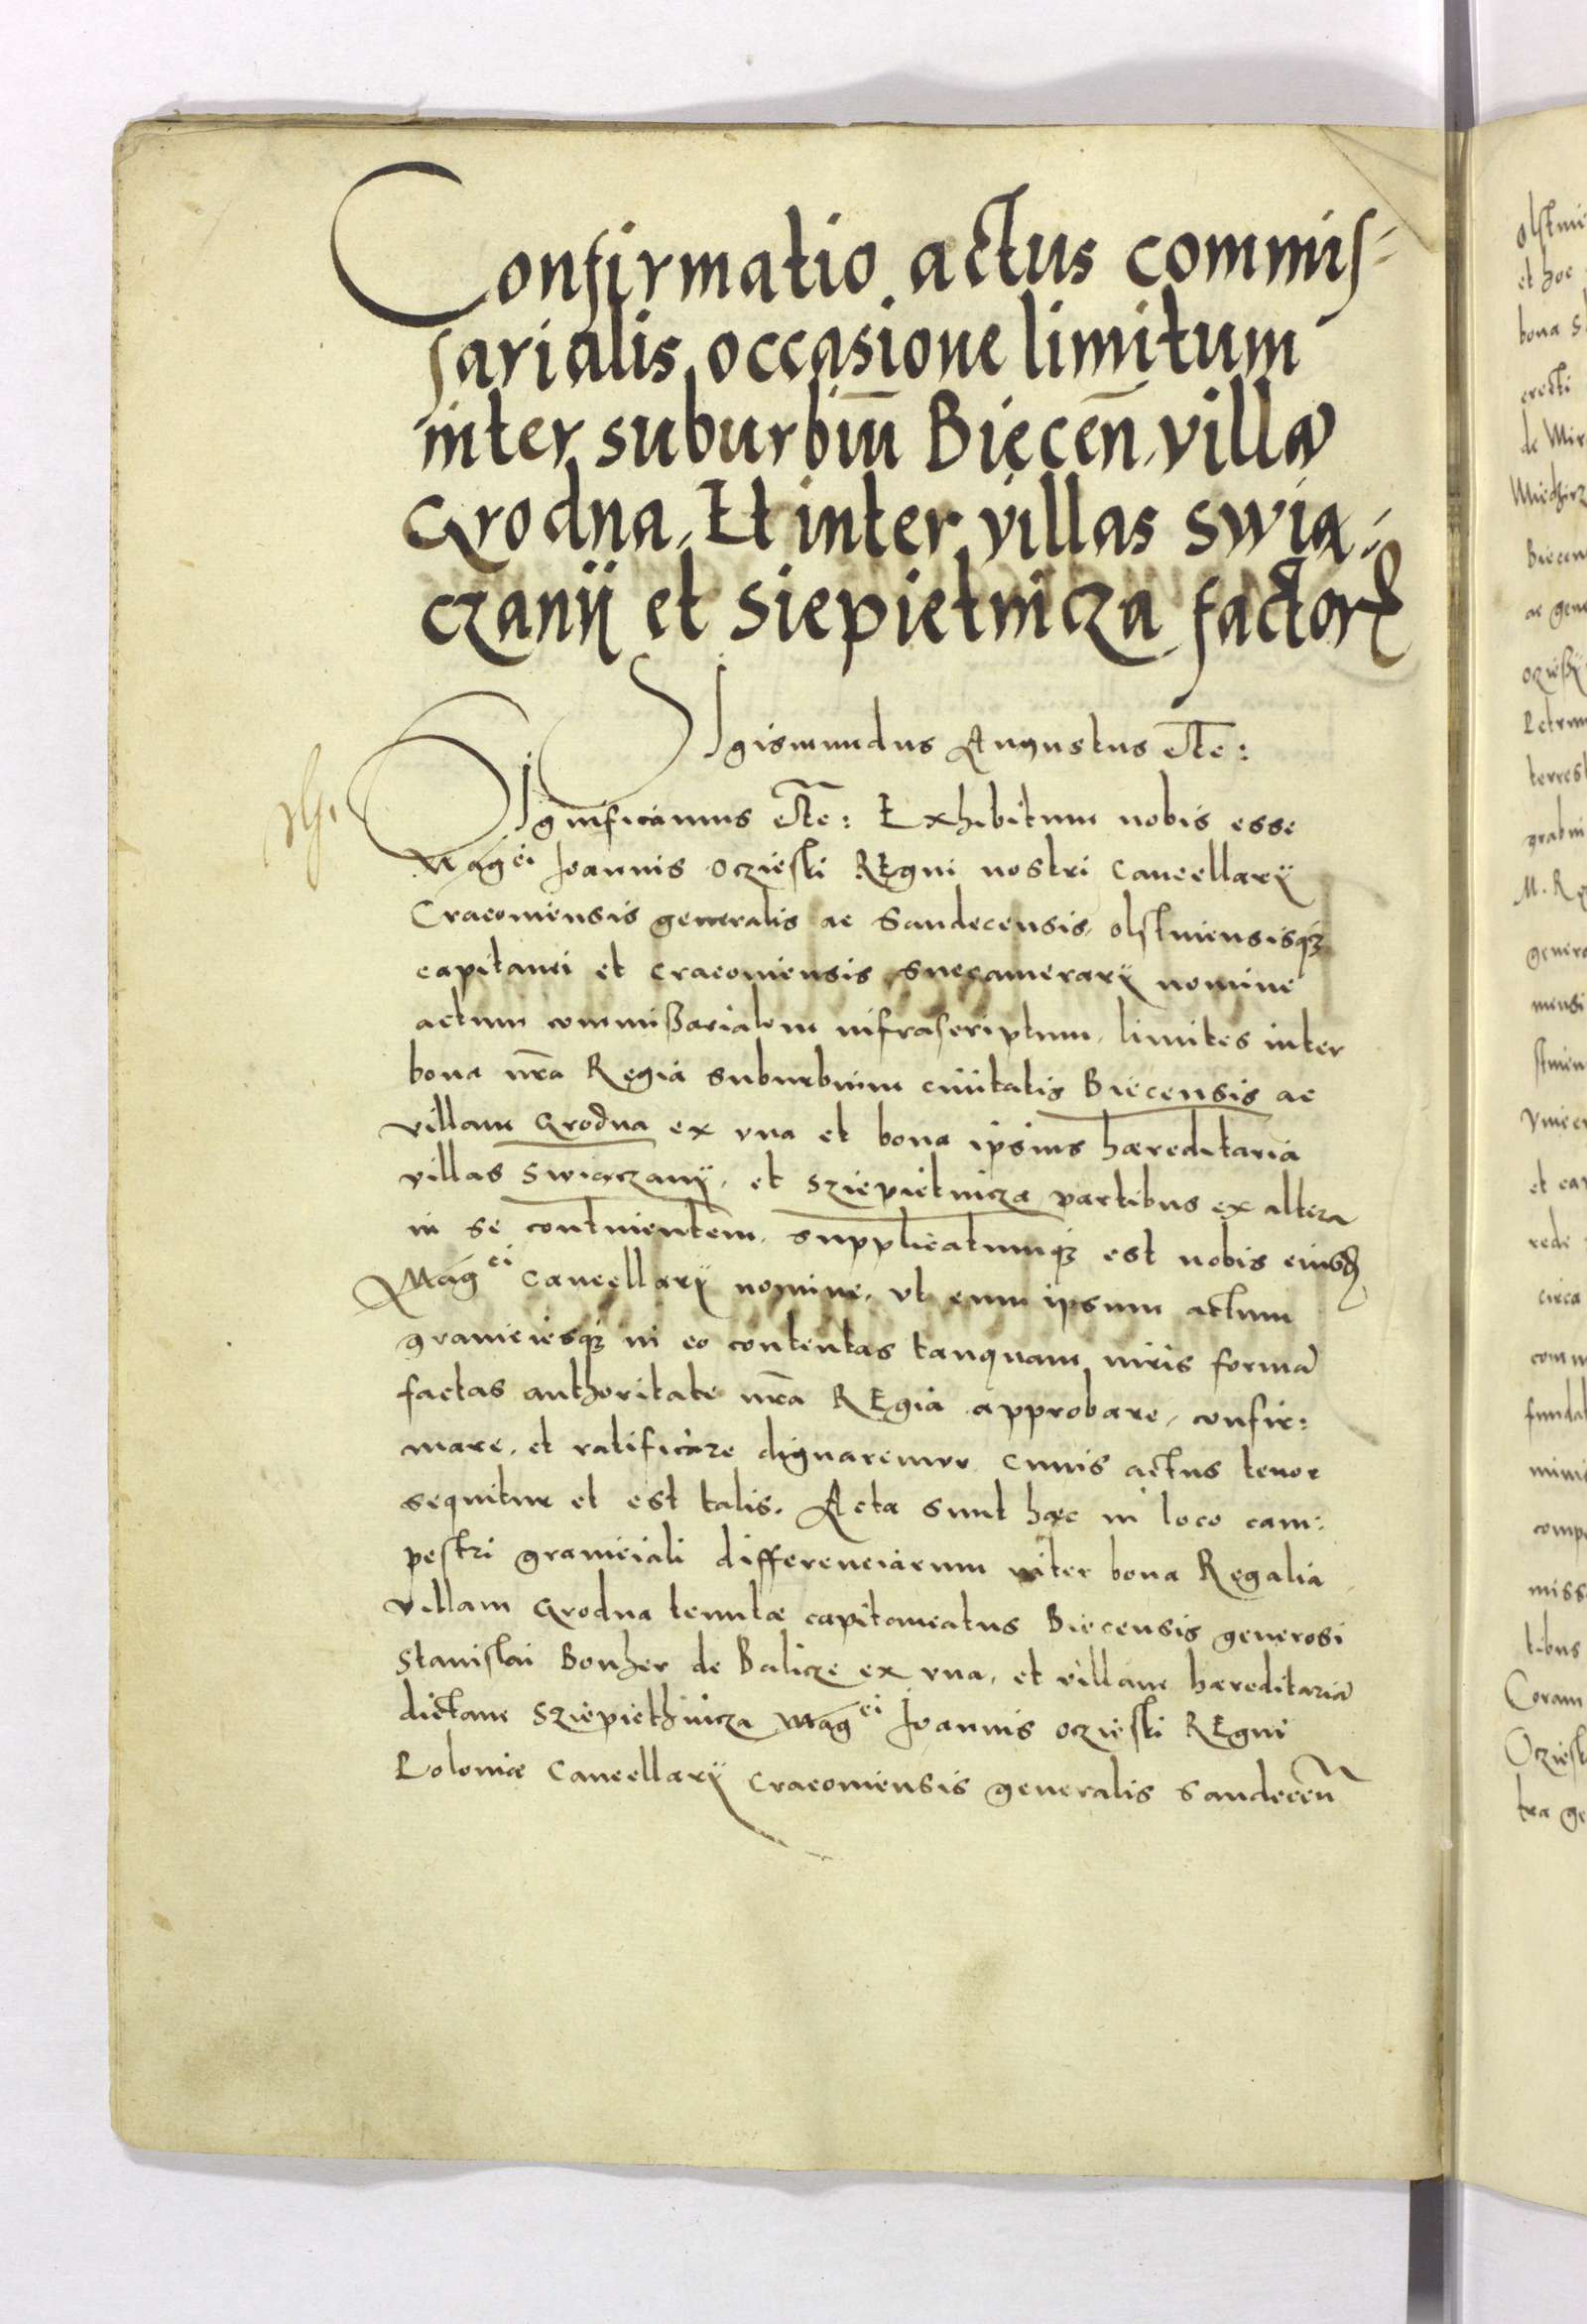 Confirmatio actus commis⸗
sarialis occasione limitum
inter suburbiū Biecēn, villā
Grodna, Et inter villas Swią⸗
czanÿ et Siepietnicza factorꝝ
SIgismundus Augustus etc:
SIgnificamus etc: Exhibitum nobis esse
Magci Joannis Oczieski REgni nostri Cancellarÿ
Cracoviensis generalis ac Sandecensis, olstinensisqꝫ
capitanei et Cracoviensis Succamerarÿ nomine
actum commißarialem infrascriptum, limites inter
bona nr̃a Regia suburbium civitatis Biecensis ac
villam Grodna ex vna et bona ipsius haereditaria
villas Swiączanÿ, et Sziepietnicza partibus ex altera
in se continentem, supplicatumqꝫ est nobis eiusd
Magci Cancellarÿ nomine, vt eum ipsum actum
graniciesqꝫ in eo contentas tanquam iuris formā
factas authoritate nr̃a REgia approbare, confir:
mare, et ratificare dignaremur cuius actus tenor
sequitur et est talis. Acta sunt haec in loco cam:
pestri graniciali differenciarum inter bona Regalia
villam Grodna tenutae capitaneatus Biecensis generosi
Stanislai Bonher de Balicze ex vna, et villam haereditariā
dictam Sziepiethnicza Magci Joannis Oczieski REgni
Poloniae Cancellarÿ Cracoviensis generalis Sandecēn
olstin
et hoc
bona S
erecti
de Mir
Biecen
ac gene
Petrum
terrest
grabin
M. Re
genera
mensi
et cap
rede
circa
comm
fundat
comp
miss
tibus
Coram
Oziesk
tra ge